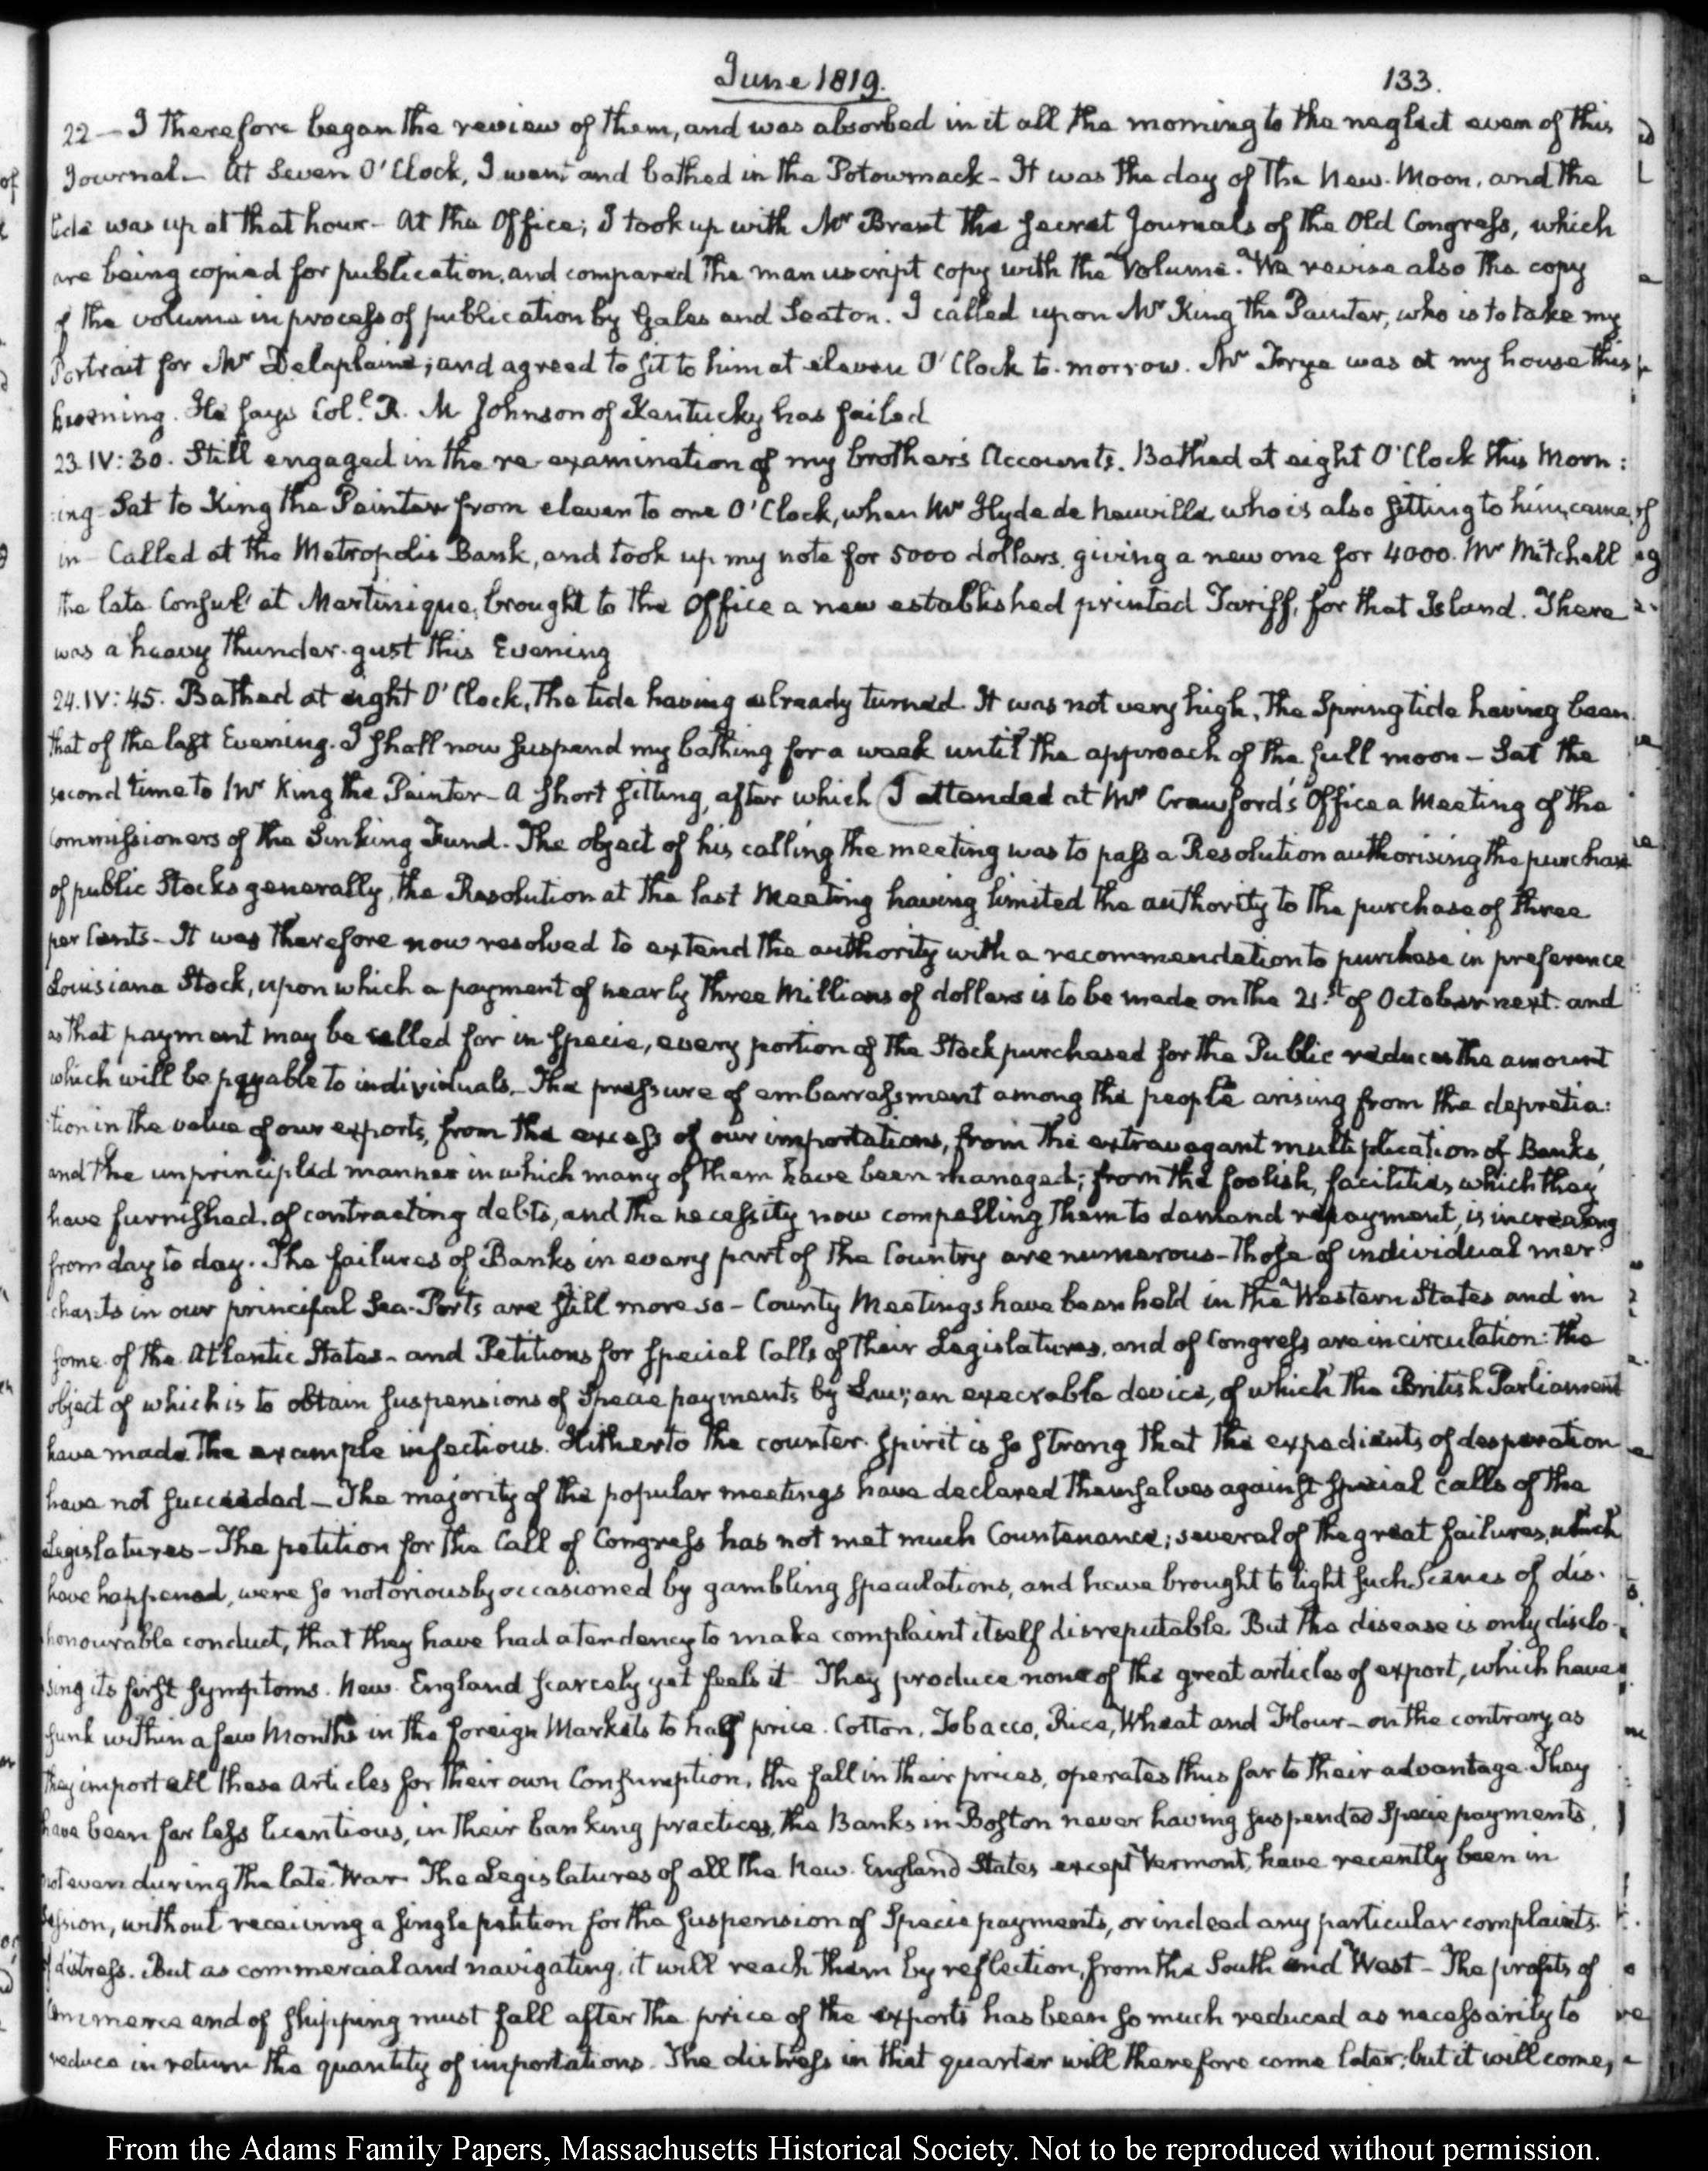 June 1819.
133.
22 — I therefore began the review of them, and was absorbed in it all the morning to the neglect even of this
Journal — At Seven O'Clock, I went and bathed in the Potowmack - It was the day of the New-Moon, and the
tide was up at that hour - At the Office; I took up with Mr Brent the secret Journals of the Old Congress, which
are being copied for publication, and compared the manuscript copy with the Volume. We revise also the copy
of the volume in process of publication by Gales and Seaton. I called upon Mr King the Painter, who is to take my
Portrait for Mr Delaplaine; and agreed to sit to him at eleven O'Clock to-morrow. Mr Frye was at my house this
Evening. He says Col.l R. M Johnson of Kentucky has failed
23. IV: 30. Still engaged in the re-examination of my brother's Accounts. Bathed at eight O'Clock this Morn:
:ing - Sat to King the Painter from eleven to one O'Clock, when Mr Hyde de Neuville, who is also sitting to him, came
in - Called at the Metropolis Bank, and took up my note for 5000 dollars, giving a new one for 4000. Mr Mitchell
the late Consul at Martinique, brought to the Office a new established printed Tariff, for that Island. There
was a heavy thunder-gust this Evening
24. IV: 45. Bathed at eight O'Clock, the tide having already turned. It was not very high, the Spring tide having been
that of the last Evening. I shall now suspend my bathing for a week until the approach of the full moon - Sat the
second time to Mr King the Painter - A short sitting, after which I attended at Mr Crawford's Office a Meeting of the
Commissioners of the Sinking Fund. The object of his calling the meeting was to pass a Resolution authorising the purchase
of public Stocks generally, the Resolution at the last Meeting having limited the authority to the purchase of three
per Cents - It was therefore now resolved to extend the authority with a recommendation to purchase in preference
Louisiana Stock, upon which a payment of nearly three Millions of dollars is to be made on the 21.st of October next. and
as that payment may be called for in specie, every portion of the Stock purchased for the Public reduces the amount
which will be payable to individuals. - The pressure of embarrassment among the people arising from the depretia:
:tion in the value of our exports, from the excess of our importations, from the extravagant multiplication of Banks,
and the unprincipled manner in which many of them have been managed; from the foolish, facilities which they
have furnished, of contracting debts, and the necessity now compelling them to demand repayment, is increasing
from day to day. The failures of Banks in every part of the Country are numerous - those of individual mer:
chants in our principal Sea-Ports are still more so - County Meetings have been held in the Western States and in
some of the Atlantic States - and Petitions for special Calls of their Legislatures, and of Congress are in circulation: the
object of which is to obtain suspensions of Specie payments by Law; an execrable device, of which the British Parliament
have made the example infectious. Hitherto the counter-spirit is so strong that the expedients of desperation
have not succeeded - The majority of the popular meetings have declared themselves against special calls of the
Legislatures - The petition for the Call of Congress has not met much Countenance; several of the great failures, which
have happened, were so notoriously occasioned by gambling speculations, and have brought to light such Scenes of dis-
honourable conduct, that they have had a tendency to make complaint itself disreputable. But the disease is only disclo-
sing its first symptoms. New-England scarcely yet feels it - They produce none of the great articles of export, which have
sunk within a few Months in the foreign Markets to half price. Cotton, Tobacco, Rice, Wheat and Flour - on the contrary, as
they import all these Articles for their own Consumption, the fall in their prices, operates thus far to their advantage. They
have been far less licentious, in their banking practices, the Banks in Boston never having suspended Specie payments,
not even during the late War. The Legislatures of all the New-England States except Vermont, have recently been in
session, without receiving a single petition for the suspension of Specie payments, or indeed any particular complaints
of distress. But as commercial and navigating, it will reach them by reflection, from the South and West - The profits of
Commerce and of shipping must fall after the price of the exports has been so much reduced as necessarily to
reduce in return the quantity of importations. The distress in that quarter will therefore come later; but it will come,
From the Adams Family Papers, Massachusetts Historical Society. Not to be reproduced without permission.